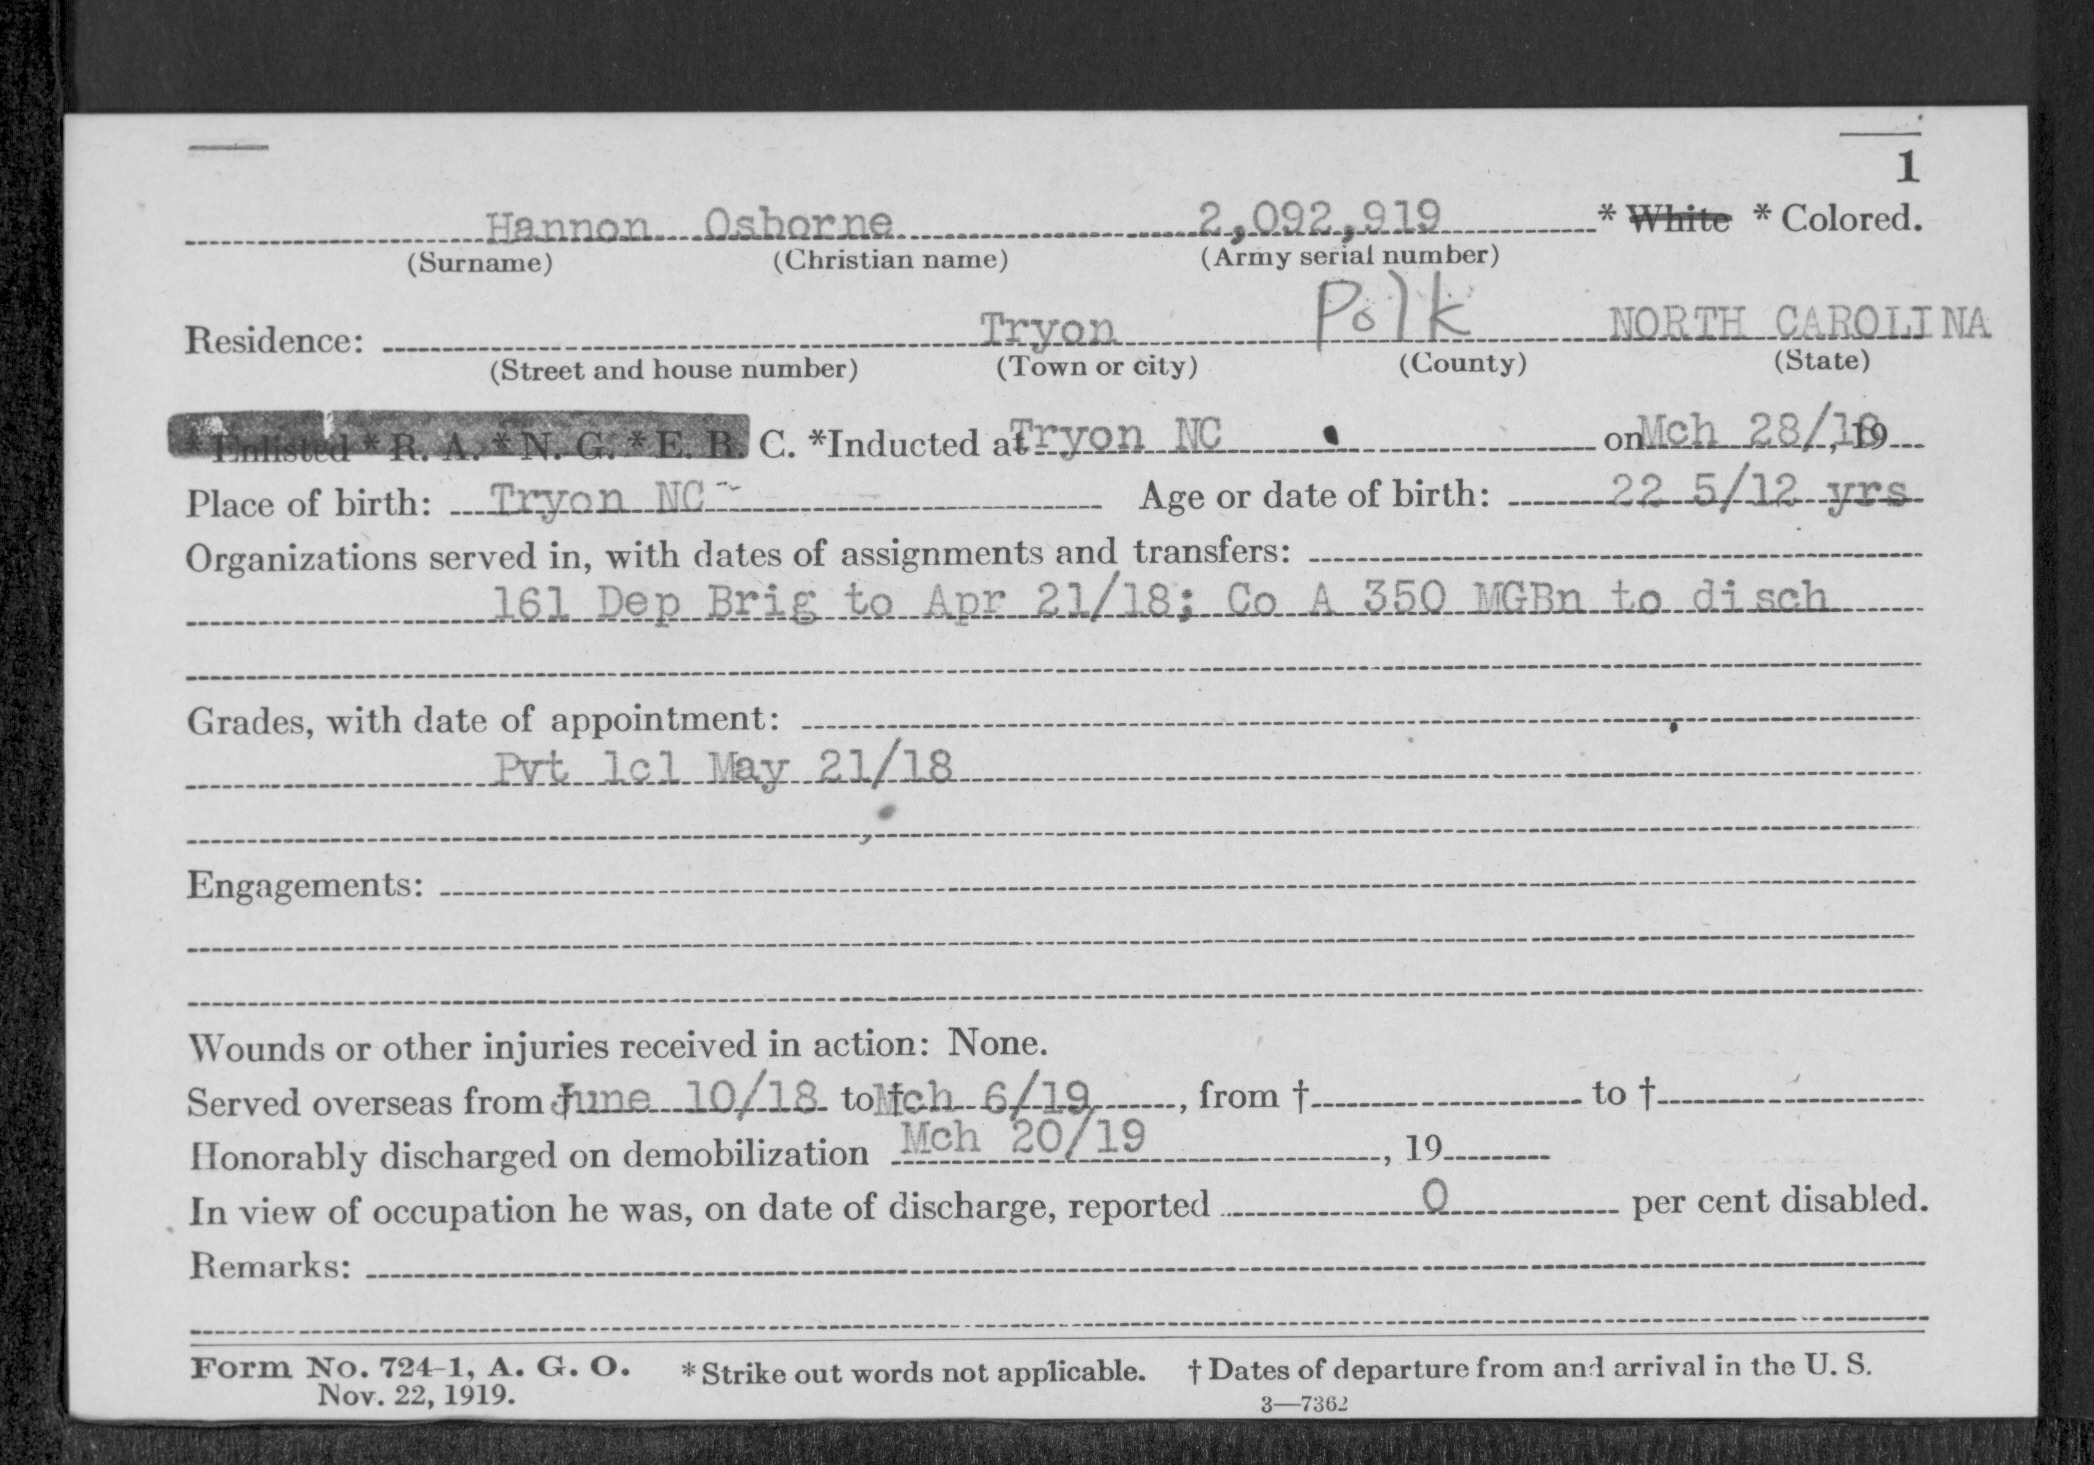 1
Hannon Osborne 2,092,919 * White * Colored.
(Surname) (Christian name) (Army serial number)
Residence: Tryon Polk NORTH CAROLINA
(Street and house number) (Town or city) (County) (State)
* Enlisted * R. A. * N. G. * E. R. C. *Inducted at Tryon NC on Mch 28/18, 19
Place of birth: Tryon NC Age or date of birth: 22 5/12 yrs
Organizations served in, with dates of assignments and transfers:
161 Dep Brig to Apr 21/18; Co A 350 MGBn to disch
Grades, with date of appointment:
Pvt 1cl May 21/18
Engagements:
Wounds or other injuries received in action: None.
Served overseas from † June 10/18 to † Mch 6/19, from † to †
Honorably discharged on demobilization Mch 20/19, 19
In view of occupation he was, on date of discharge, reported 0 per cent disabled.
Remarks:
Form No. 724-1, A. G. O. * Strike out words not applicable. † Dates of departure from and arrival in the U. S.
Nov. 22, 1919. 3—7362